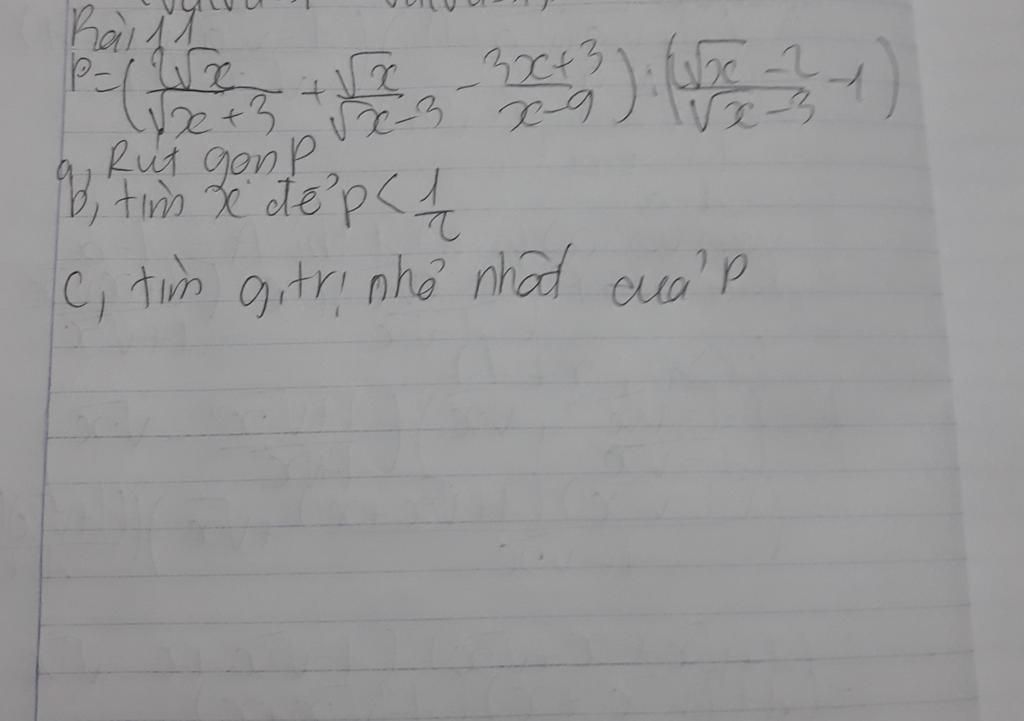 Bài 11
P=(2√x/(√x+3) + √x/(√x-3) - (3x+3)/(x-9)) : ((√x-2)/(√x-3) - 1)
a, Rút gọn P
b, tìm x để P < 1/2
c, tìm g.trị nhỏ nhất của P